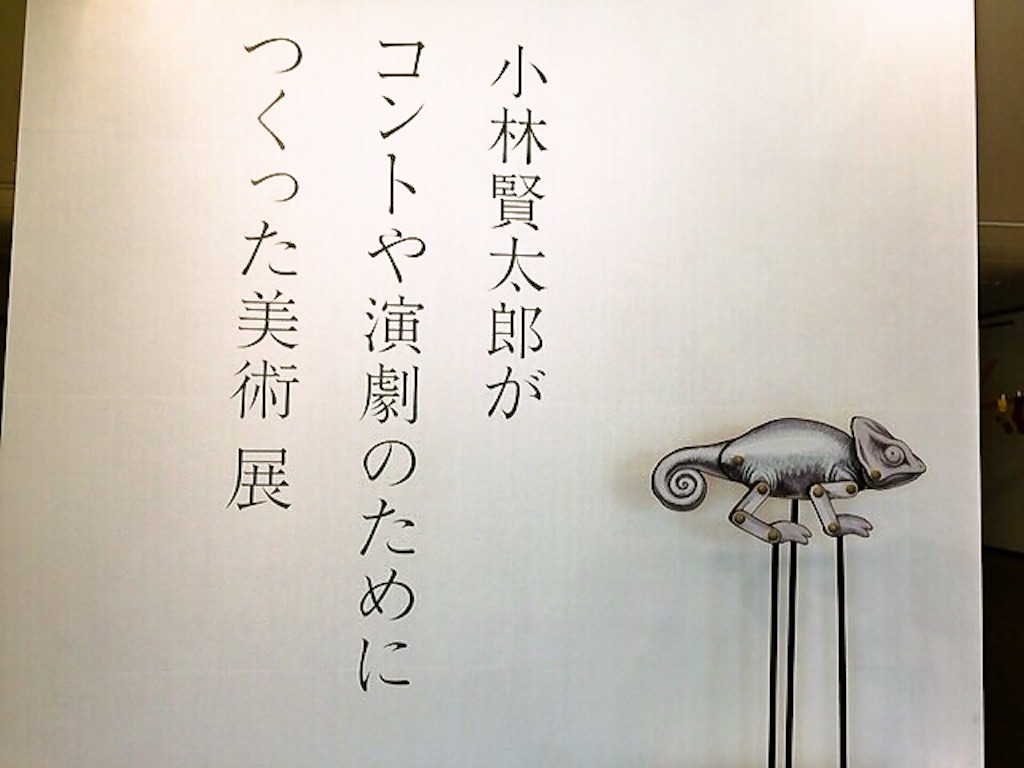 小林賢太郎が
コントや演劇のために
つくった美術 展